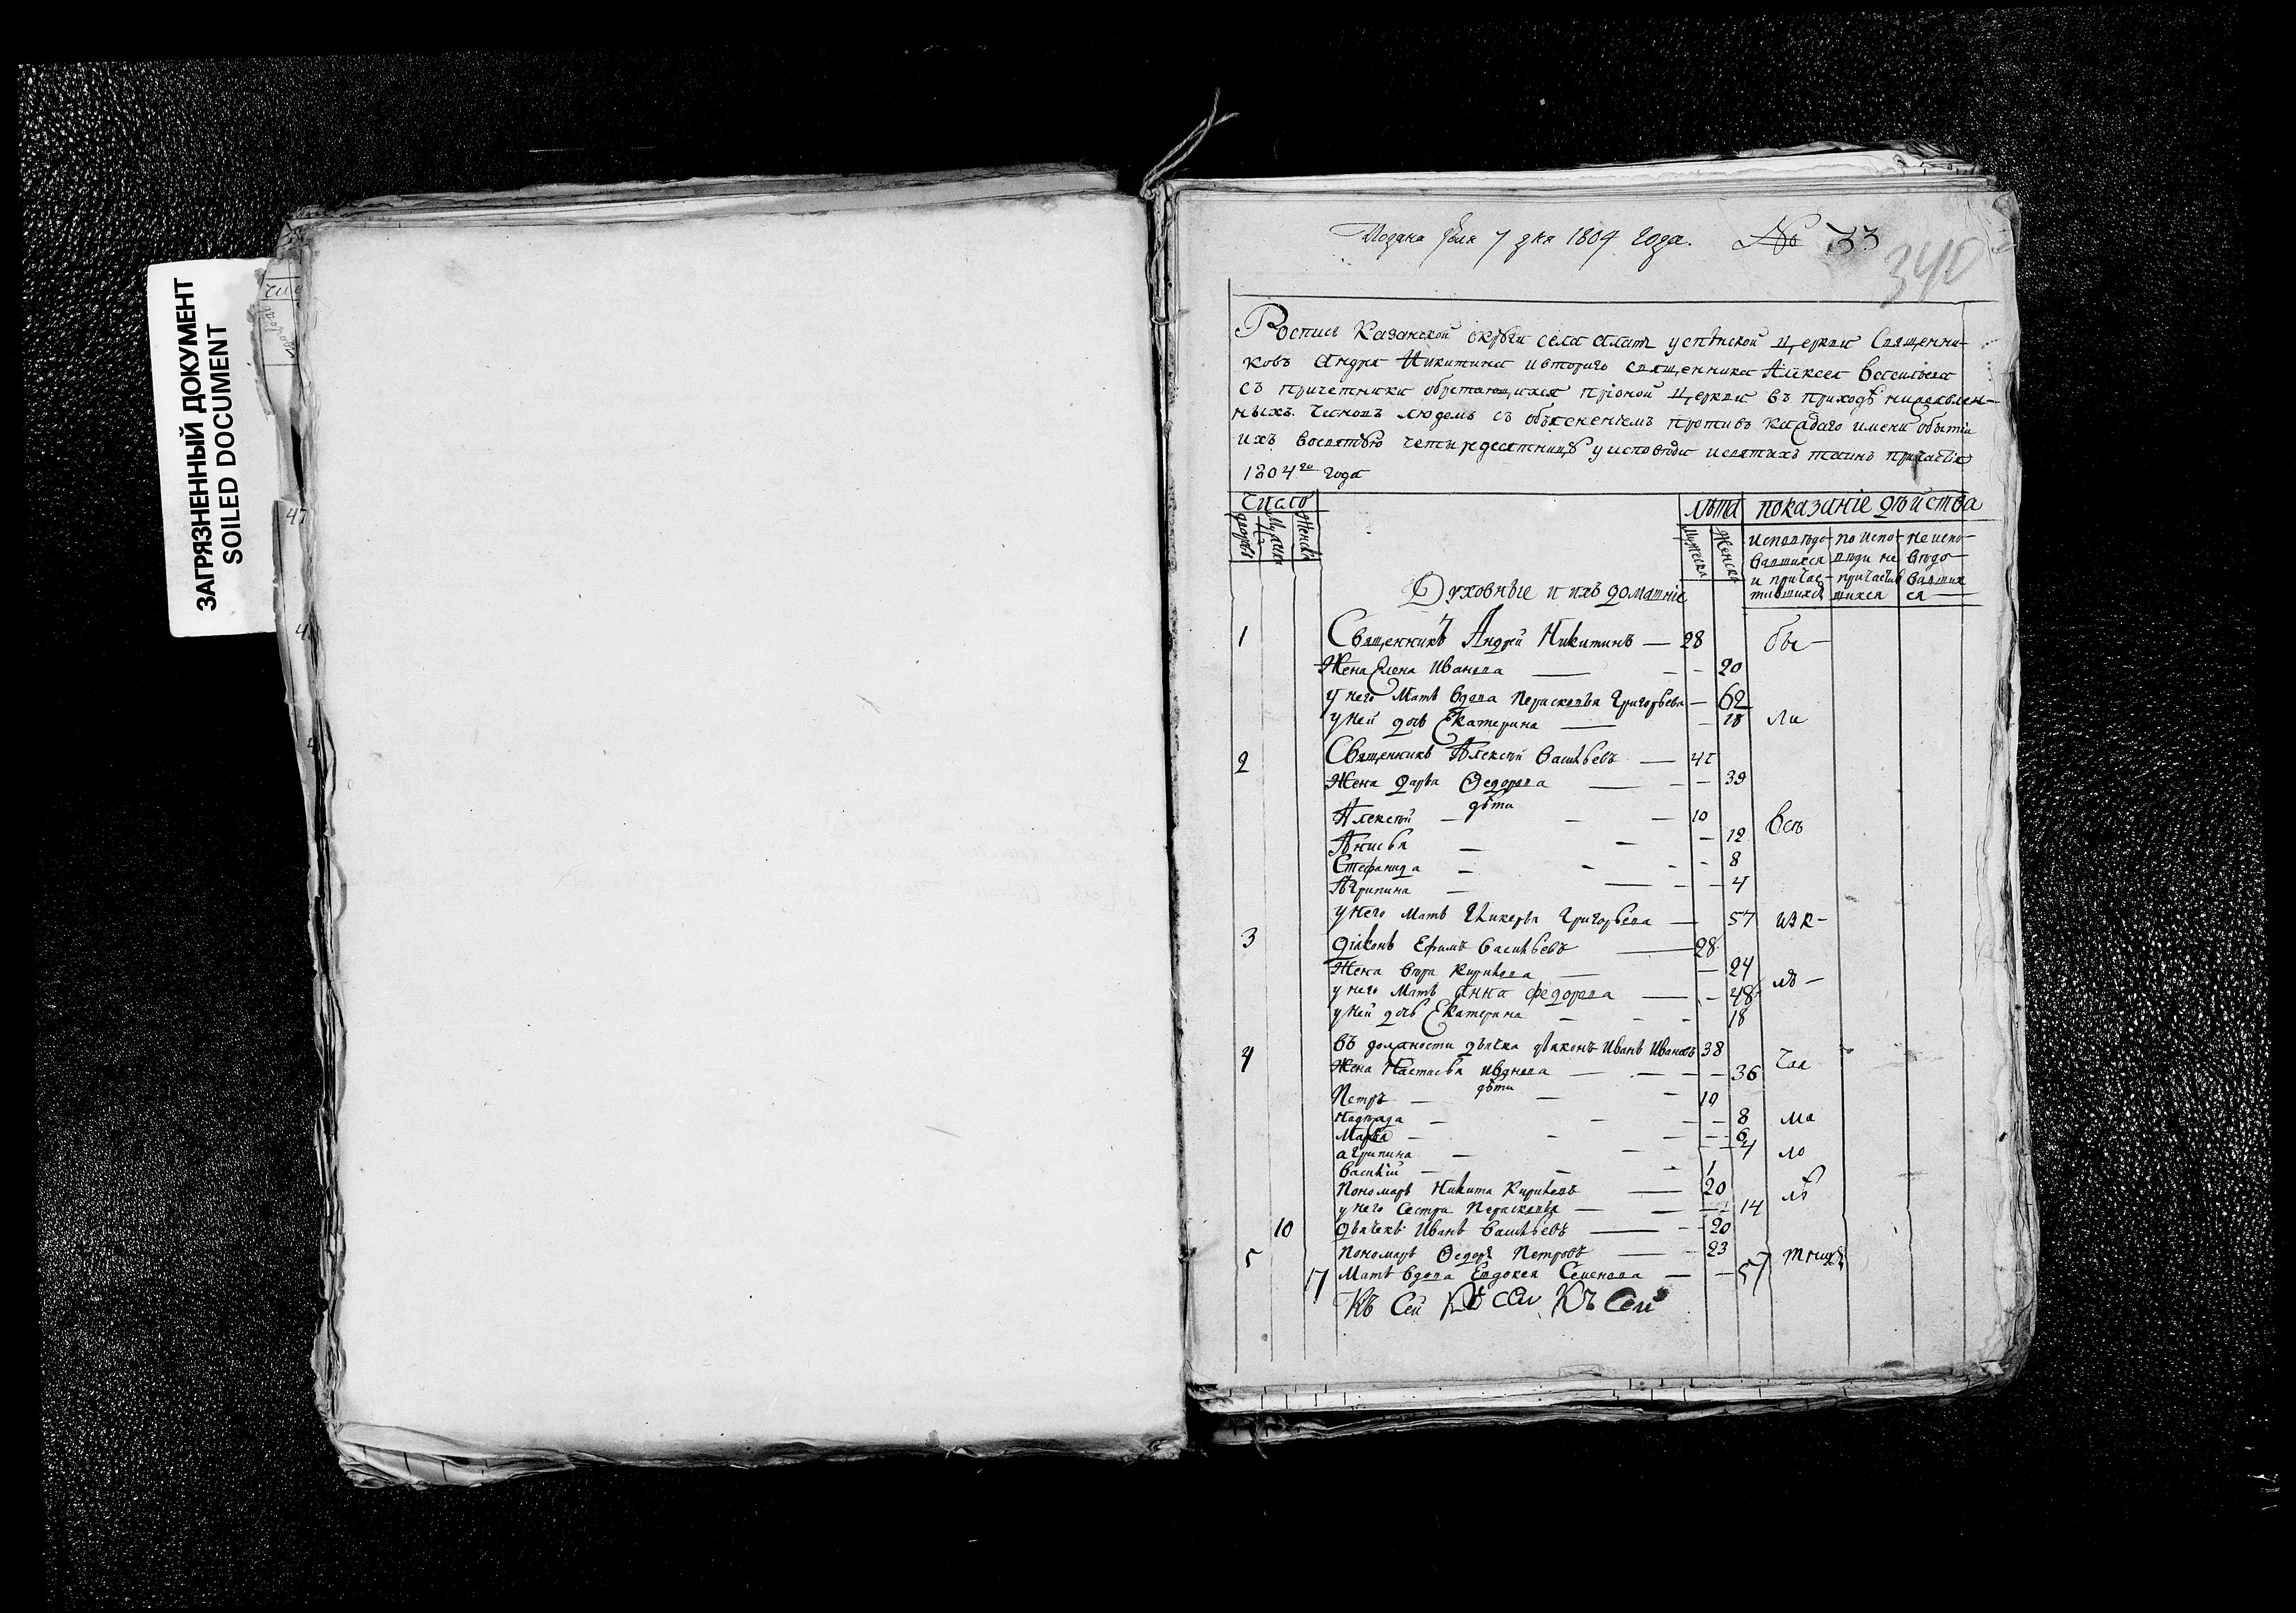 ЗАГРЯЗНЕННЫЙ ДОКУМЕНТ
SOILED DOCUMENT
47
7 дня 1804 года. № 33
340
Роспись Казанской округи села Алатъ успѣнской Церкви Священни-
ковъ Андрея Никитина и втораго священника Алексея Васильева
съ причетники обретающихся при оной Церкви въ приходѣ нижеявлен-
ныхъ чиновъ людемъ съ объясненіемъ противъ каждаго имени о бытіи
ихъ во святую четыредесятницу у исповѣди и святыхъ таинъ причастія
1804го года
Число
лѣта
показаніе дѣйства
дворовъ
Мужска
Женска
Мужска
Женска
исповѣдо-
вавшихся
и причас-
тившихся
по испо-
вѣди не
причастив
шихся
не испо-
вѣдо-
вавших
ся
Духовныe и ихъ домашніе
1 Священникъ Андрей Никитинъ — 28 бы-
Жена Елена Иванова — 20
у него Мать вдова Пераскевья Григорьева — 62
у ней дочь Екатерина — 18 ли
2 Священникъ Алексѣй Васильевъ — 41
Жена дарья Ѳедорова — 39
дѣти
Алексѣй — 10 всѣ
Анисья — 12
Стефанида — 8
Агрипина — 4
у него Мать Гликерья Григорьева — 57 изк-
3 діаконъ Ефимъ Васильевъ — 28
Жена вѣра Кирилова — 24
у него Мать Анна федорова — 48
у ней дочь Екатерина — 18
4 въ должности дьячка дьяконъ Иванъ Ивановъ 38
Жена Настасья Иванова — 36
дѣти
Петръ — 10
Надежда — 8 ма
Марья — 6
агрипина — 4 ло
Василій — 1
Пономарь Никита Кириловъ — 20 лѣ
у него Сестра Пераскевья — 14
10 дьячекъ Иванъ Васильевъ — 20
5 пономарь Ѳедоръ Петровъ — 23
17 Мать вдова Евдокея Семенова — 57
Къ Сей Къ сей Къ Сей